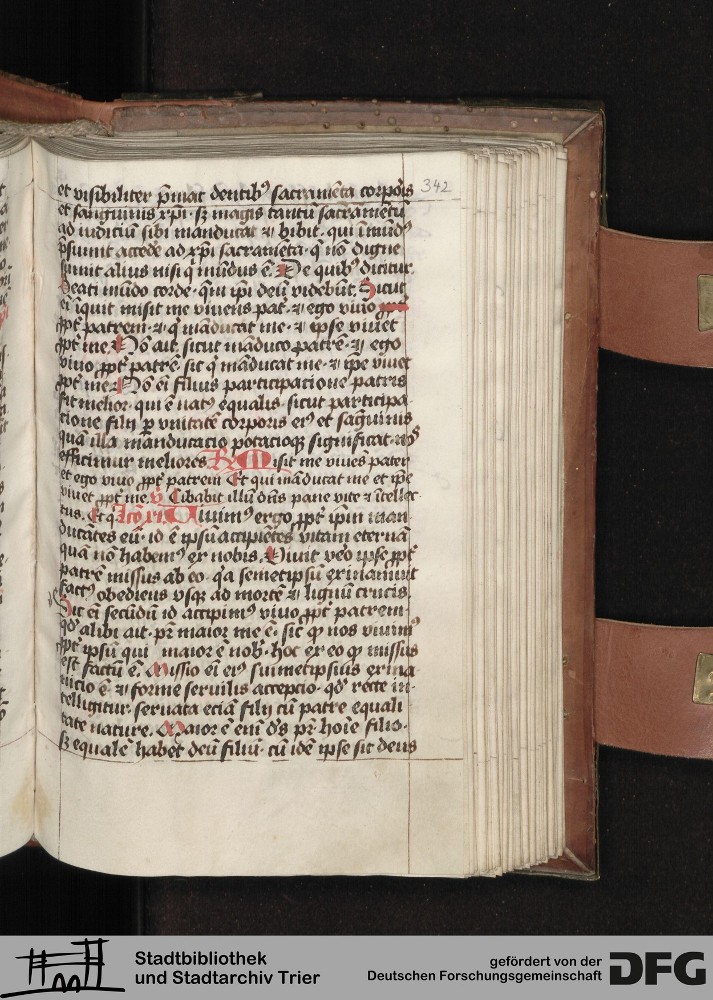 342
et visibiliter p̄mat dentib⁹ sacramēta corpo̅is
et sanguinis xp̅i · sʒ magis tantū sacramētū
ad iudiciū sibi manducat ⁊ bibit · qui ī mūd⁹
p̄sumit accedē ad xp̅i sacramēta · q̄ nō digne
sumit alius nisi q̇ mūdus ē. De quib⁹ dicitur.
Beati mūdo corde · qm̄ ip̅i deū videbūt. Sicut
ei īquit misit me vivens pat᷒ · ⁊ ego vivo
ꝓpt᷒ patrem · ⁊ q̇ māducat me · ⁊ ipse vivet
ꝓpt᷒ me. Nō ait sicut māduco patrē · ⁊ ego
vivo ꝓpt᷒ patrē · sic q̇ māducat me · ⁊ ip̅e vivet
ꝓpt᷒ me. Nō ei filius participatione patris
fit melior · qui ē nat⁹ equalis · sicut participa
tione filij p̲ vnitatē corporis ei⁹ et sāguinis
quā illa manducatio potacioqʒ significat
efficimur meliores Misit me vivēs pater
et ego vivo ꝓpt᷒ patrem Et qui māducat me et ip̅e
vivet ꝓpt᷒ me. V̷ Cibabit illū dn̄s pane vite ⁊ ītellec
tus. Et q̇ Vivim⁹ ergo ꝓpt᷒ ip̅m man
ducātes eū · id ē ip̅sū accipiētes vitam eternā
quā nō habem⁹ ex nobis. Vivit v̊o ip̅se ꝓpt᷒
patrē missus ab eo · q̇a semetipsū exinanivit
fact⁹ obediens vsqʒ ad mortē ⁊ lignū crucis.
Sic ei secūdū id accipim⁹ vivo ꝓpt᷒ patrem
qd̕ alibi ait · pr̄ maior me ē · sic ꝙ nos vivim⁹
ꝓpt᷒ ipsū qui maior ē nob̕ · hoc ex eo ꝙ missus
est factū ē. Missio ei ei⁹ suimetipsius exina
nicio ē ⁊ forme servilis acceptio · qd̕ recte in
telligitur · servata eciā filij cū patre equali
tate nature. Maior ē enī d̄s pr̄ hoīe filio ·
sʒ equalē habet deū filiū · cū idē ip̅se sit deus
Stadtbibliothek
und Stadtarchiv Trier
gefördert von der
Deutschen Forschungsgemeinschaft DFG